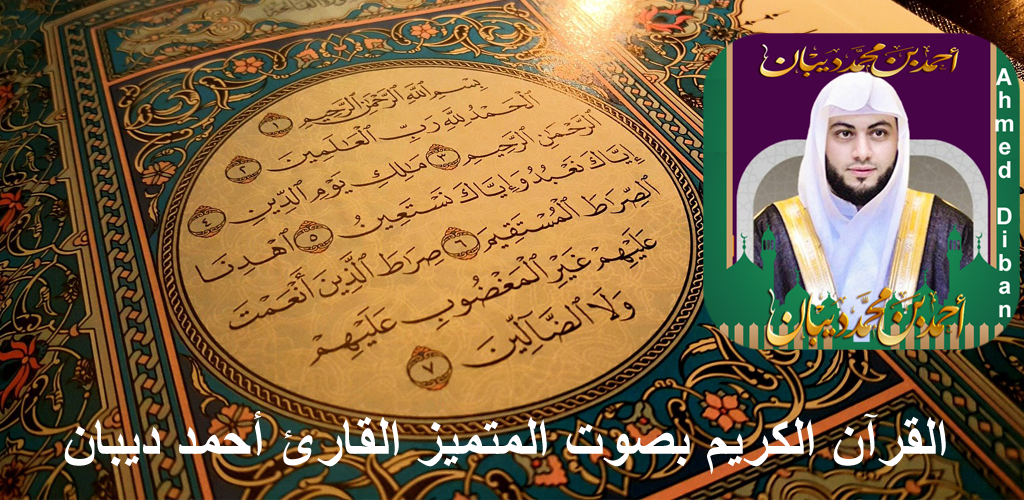 بِسْمِ ٱللَّهِ ٱلرَّحْمَٰنِ ٱلرَّحِيمِ ١
ٱلْحَمْدُ لِلَّهِ رَبِّ ٱلْعَٰلَمِينَ ٢
ٱلرَّحْمَٰنِ ٱلرَّحِيمِ ٣ مَٰلِكِ يَوْمِ ٱلدِّينِ ٤
إِيَّاكَ نَعْبُدُ وَإِيَّاكَ نَسْتَعِينُ ٥ ٱهْدِنَا
ٱلصِّرَٰطَ ٱلْمُسْتَقِيمَ ٦ صِرَٰطَ ٱلَّذِينَ أَنْعَمْتَ
عَلَيْهِمْ غَيْرِ ٱلْمَغْضُوبِ عَلَيْهِمْ
وَلَا ٱلضَّآلِّينَ ٧
أحمد بن محمد ديبان
Ahmed Diban
أحمد بن محمد ديبان
القرآن الكريم بصوت المتميز القارئ أحمد ديبان